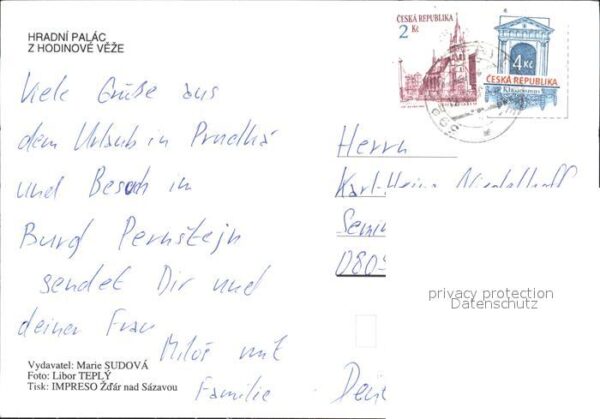 HRADNÍ PALÁC
Z HODINOVÉ VĚŽE
ČESKÁ REPUBLIKA
2 Kč
4 Kč
ČESKÁ REPUBLIKA
Klasicismus
Viele Grüße aus
dem Urlaub in Prudká
und Besuch in
Burg Pernštejn
sendet Dir und
deiner Frau
Miloš mit
Familie
Herrn
Karl-Heinz
080
privacy protection
Datenschutz
Vydavatel: Marie SUDOVÁ
Foto: Libor TEPLÝ
Tisk: IMPRESO Žďár nad Sázavou